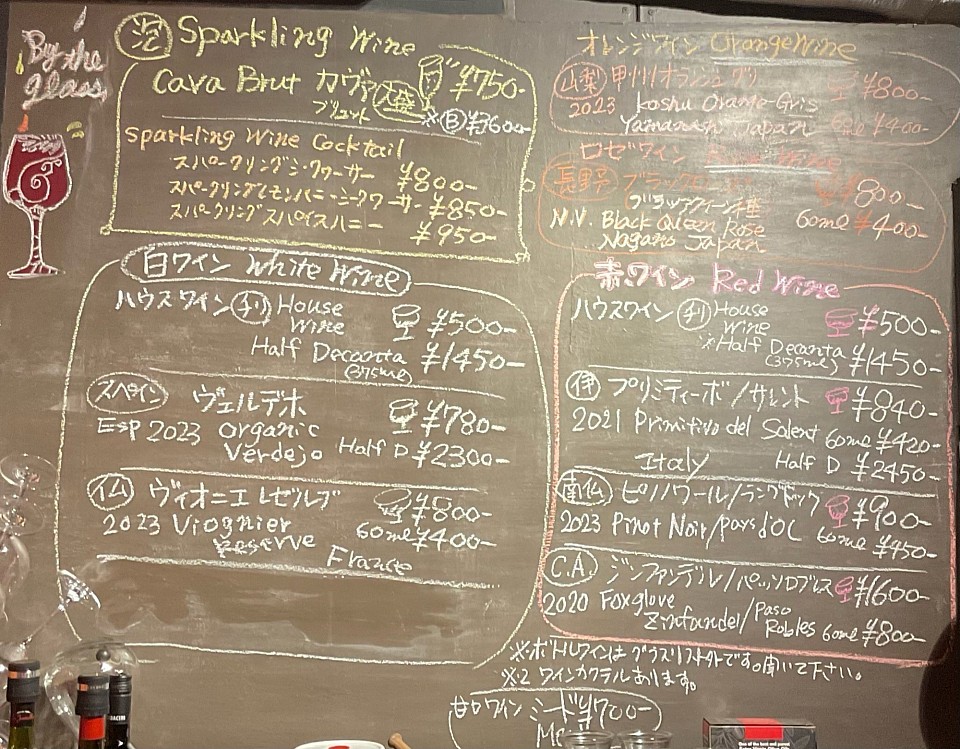 By the
glass
泡 Sparkling Wine
Cava Brut カヴァ ¥750-
ブリュット ※Ⓑ¥3600-
Sparkling Wine Cocktail
スパークリングシークヮーサー ¥800-
スパークリングレモンハニーシークワーサー ¥850-
スパークリングスパイスハニー ¥950-
白ワイン White Wine
ハウスワイン チリ House
Wine ¥500-
Half Decanta ¥1450-
(375ml)
スペイン ヴェルデホ ¥780-
ESP 2023 Organic
Verdejo Half D ¥2300-
仏 ヴィオニエ レゼルブ ¥800-
2023 Viognier 60ml ¥400-
Reserve
France
オレンジワイン Orange Wine
山梨 甲州オランジュグリ ¥800-
2023 Koshu Orange Gris
Yamanashi Japan 60ml ¥400-
ロゼワイン Rose Wine
長野 ブラック ¥800-
ブラッククイーン種 60ml ¥400-
N.V. Black Queen Rose
Nagano Japan
赤ワイン Red Wine
ハウスワイン チリ House
Wine ¥500-
※Half Decanta ¥1450-
(375ml)
伊 プリミティーボ/サレント ¥840-
2021 Primitivo del Salent 60ml ¥420-
Italy Half D ¥2450-
南仏 ピノノワール/ラングドック ¥900-
2023 Pinot Noir/Pays d'OC 60ml ¥450-
C.A ジンファンデル/パッソロブレス ¥1600-
2020 Foxglove
Zinfandel/Paso
Robles 60ml ¥800-
※ボトルワインはグラスリスト外です。聞いて下さい。
※2 ワインカクテルあります。
甘口ワイン ミード ¥700-